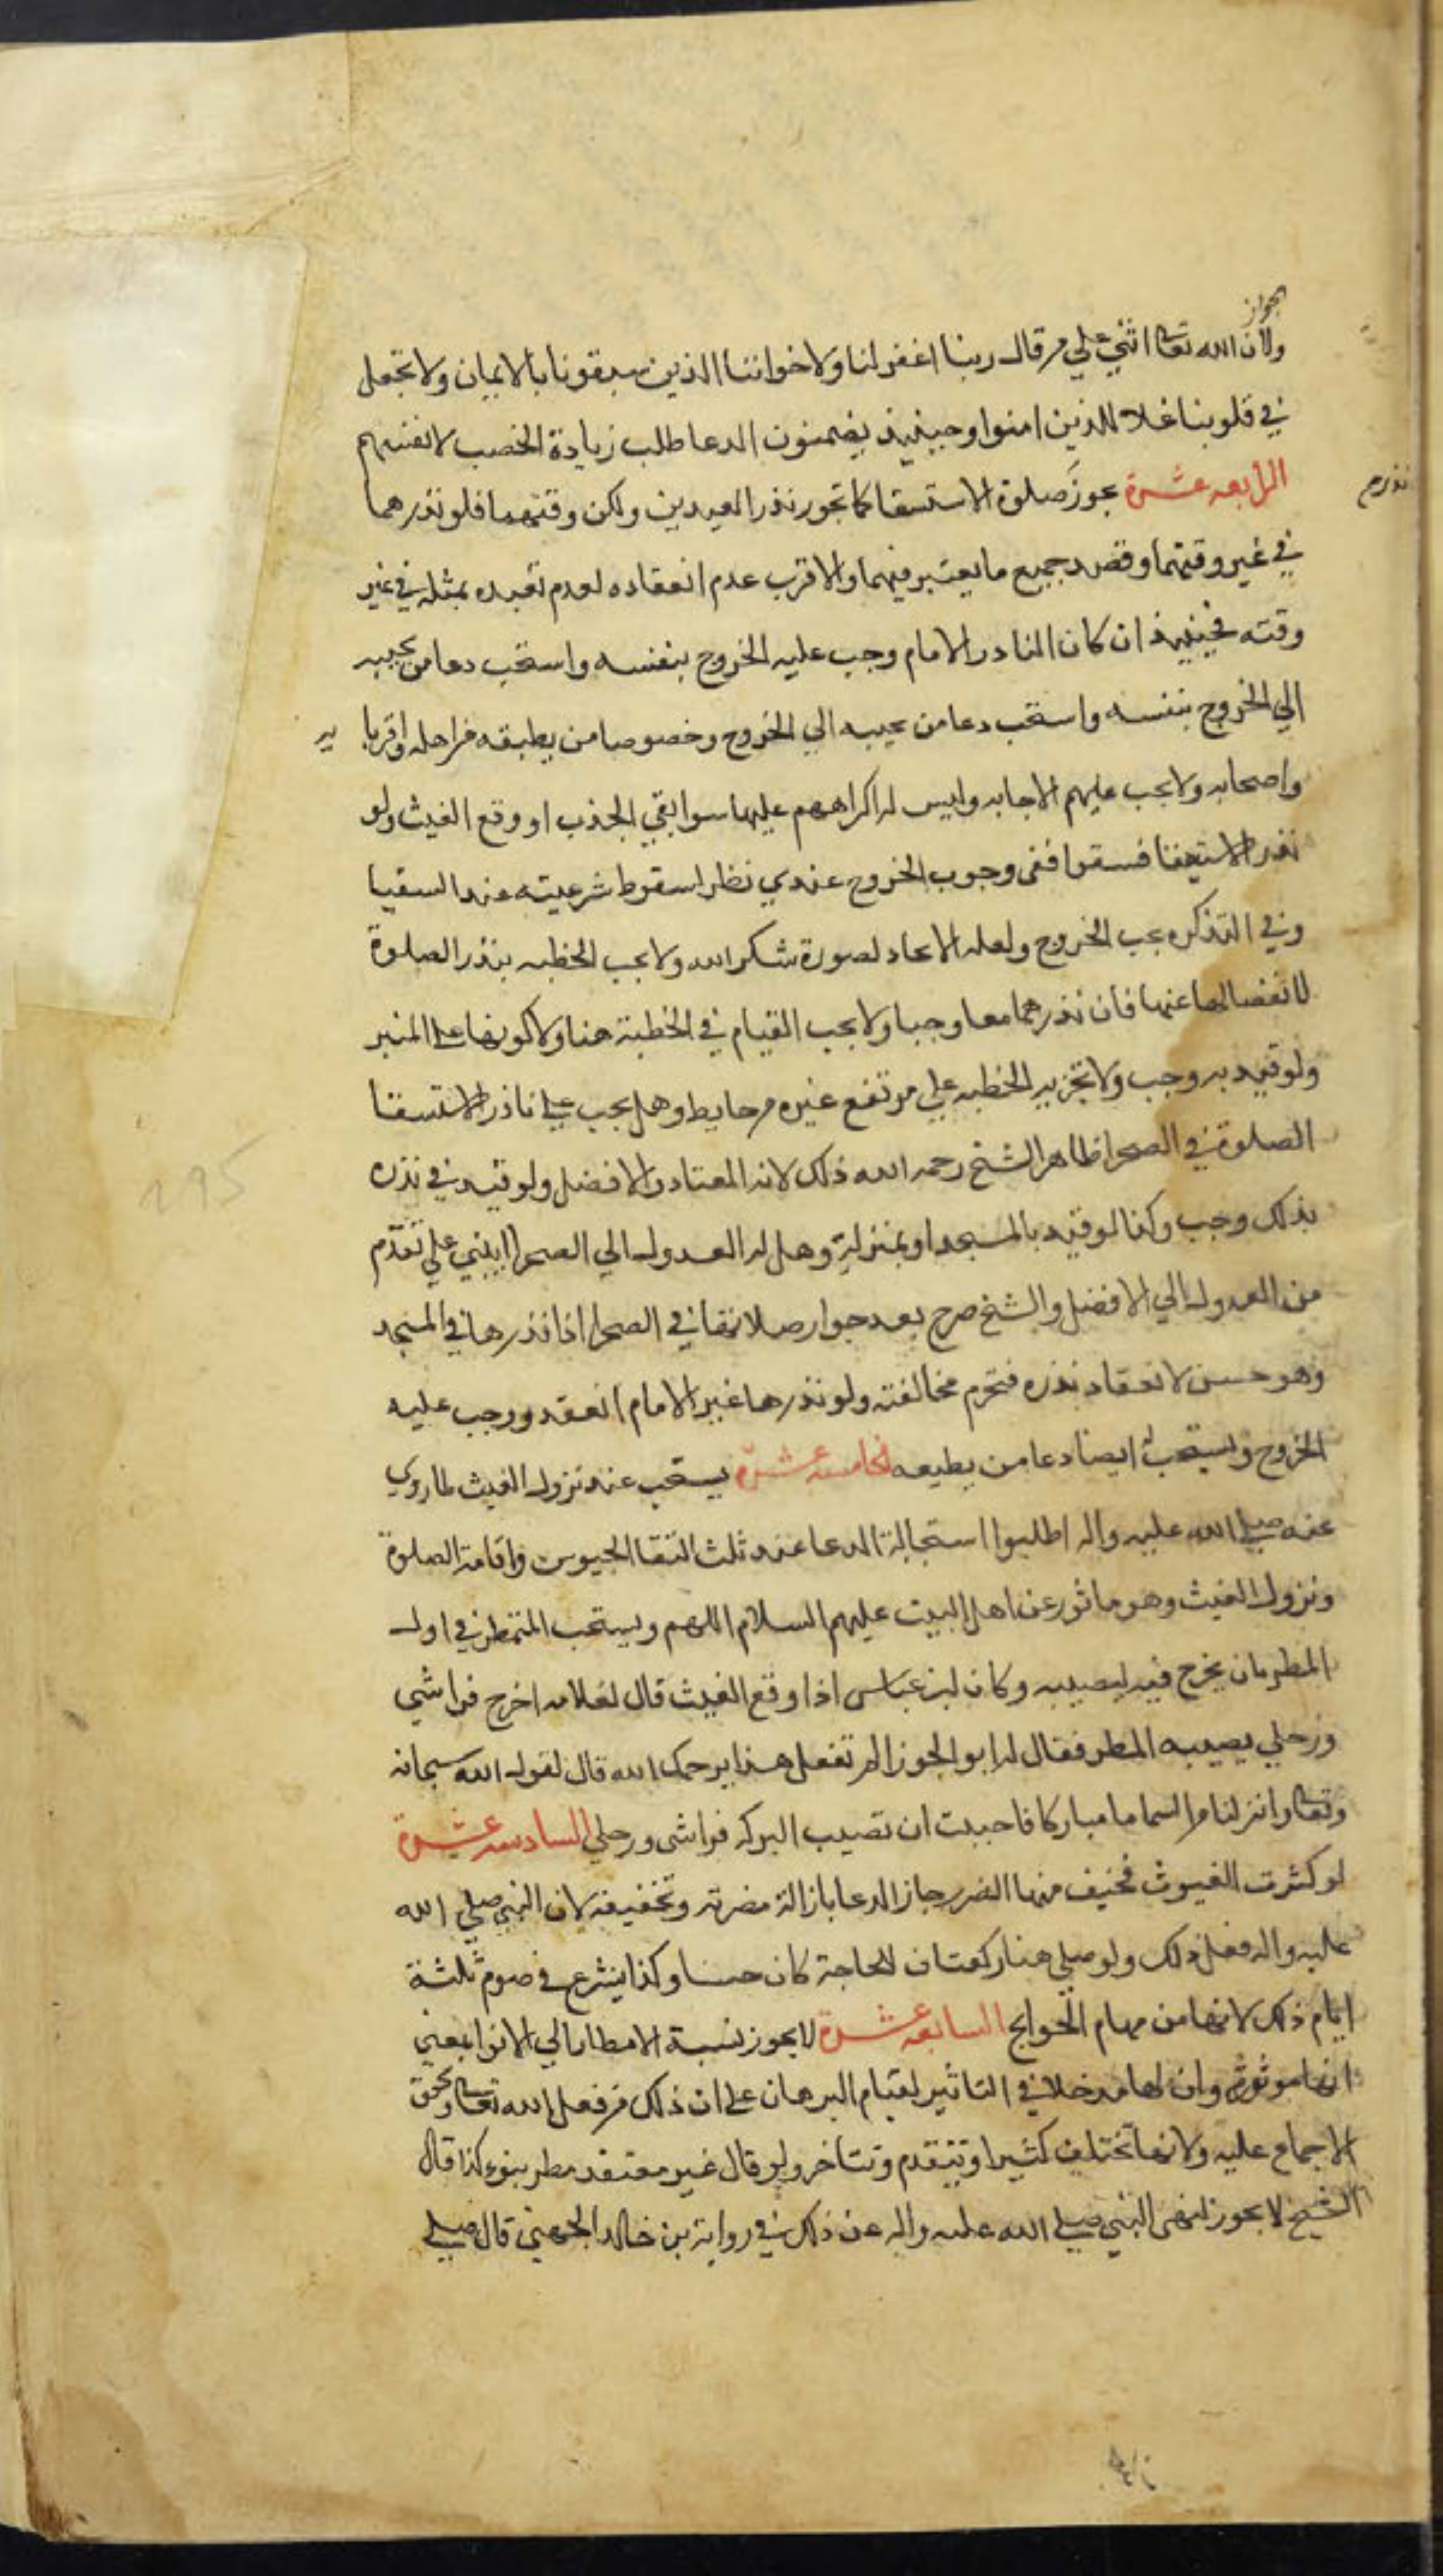 الجواز
ولان الله تعالى اثني علي من قال ربنا اغفر لنا ولاخواننا الذين سبقونا بالايمان ولا تجعل
في قلوبنا غلا للذين امنوا وحينئيذ يضمنون الدعا طلب زيادة الخصب لانفسهم
الرابعه عشرة يجوز صلوة الاستسقا كما تجوز نذر العيدين ولكن وقتهما فلو نذرهما
نذر م
في غير وقتهما وقصد جميع ما يعتبر فيهما والاقرب عدم انعقاده لعدم تعبده بمثله في غير
وقته فحينيئذ ان كان النادر الامام وجب عليه الخروج بنفسه واستحب دعا من يجيبه
الي الخروج بنفسه واستحب دعا من يجيبه الي الخروج وخصوصا من يطيقه من اهله واقربا يه
واصحابه ولا يجب عليهم الاجابه وليس له اكراههم عليها سوا بقي الجذب او وقع الغيث ولو
نذر الاستسقا فسقوا ففي وجوب الخروج عندي نظر لسقوط شرعيته عند السقيا
وفي التذكره يجب الخروج ولعله لصورة شكر الله ولا يجب الخطبه بنذر الصلوة
لانفصالها عنها فان نذرهما معا وجبا ولا يجب القيام في الخطبة هنا ولا كونها على المنبر
ولو قيد به وجب ولا تجزيه الخطبه علي مرتفع غيره من حايط وهل يجب علي ناذر الاستسقا
الصلوة في الصحرا ظاهر الشيخ رحمه الله ذلك لانه المعتاد والافضل ولو قيد في نذره
بذلك وجب وكذا لو قيد بالمسجد او بمنزله وهل له العدول الي الصحرا ايبني علي تقدم
من العدول الي الافضل والشيخ صرح بعد جواز صلاتها في الصحرا اذا نذرها في المسجد
وهو حسن لانعقاد نذره فتحرم مخالفته ولو نذرها غير الامام انعقد ووجب عليه
الخروج ويستحب له ايضا دعا من يطيعه الخامسه عشرة يستحب عند نزول الغيث لما روي
عنه صلي الله عليه واله اطلبوا استجابة الدعا عند ثلث التقا الجيوس واقامة الصلوة
ونزول الغيث وهو ماثور عن اهل البيت عليهم السلام اللهم ويستحب التمطر في اول
المطر بان يخرج فيه ليصيبه وكان ابن عباس اذا وقع الغيث قال لغلامه اخرج فراشي
ورحلي يصيبه المطر فقال له ابو الجوزا لم تفعل هذا يرحمك الله قال لقول الله سبحانه
وتعالى وانزلنا من السما ما مباركا فاحببت ان تصيب البركه فراشي ورحلي السادسه عشرة
لو كثرت الغيوث فخيف منها الضرر جاز الدعا بازالة مضرته وتخفيفه لان النبي صلي الله
عليه واله فعل ذلك ولو صلي هنا ركعتان للحاجة كان حسنا وكذا يشرع في صوم ثلثة
ايام ذلك لانها من مهام الحوايج السابعه عشرة لا يجوز نسبة الامطار الي الانوا بمعني
انها موثره وان لها مدخلا في التاثير لقيام البرهان على ان ذلك من فعل الله تعالى وتحقق
الاجماع عليه ولانها تختلف كثيرا وتتقدم وتتاخر ولو قال غير معتقد مطر بنوء كذا قال
الشيخ لا يجوز لنهي النبي صلي الله عليه واله عن ذلك في رواية بن خالد الجهني قال صلي
195